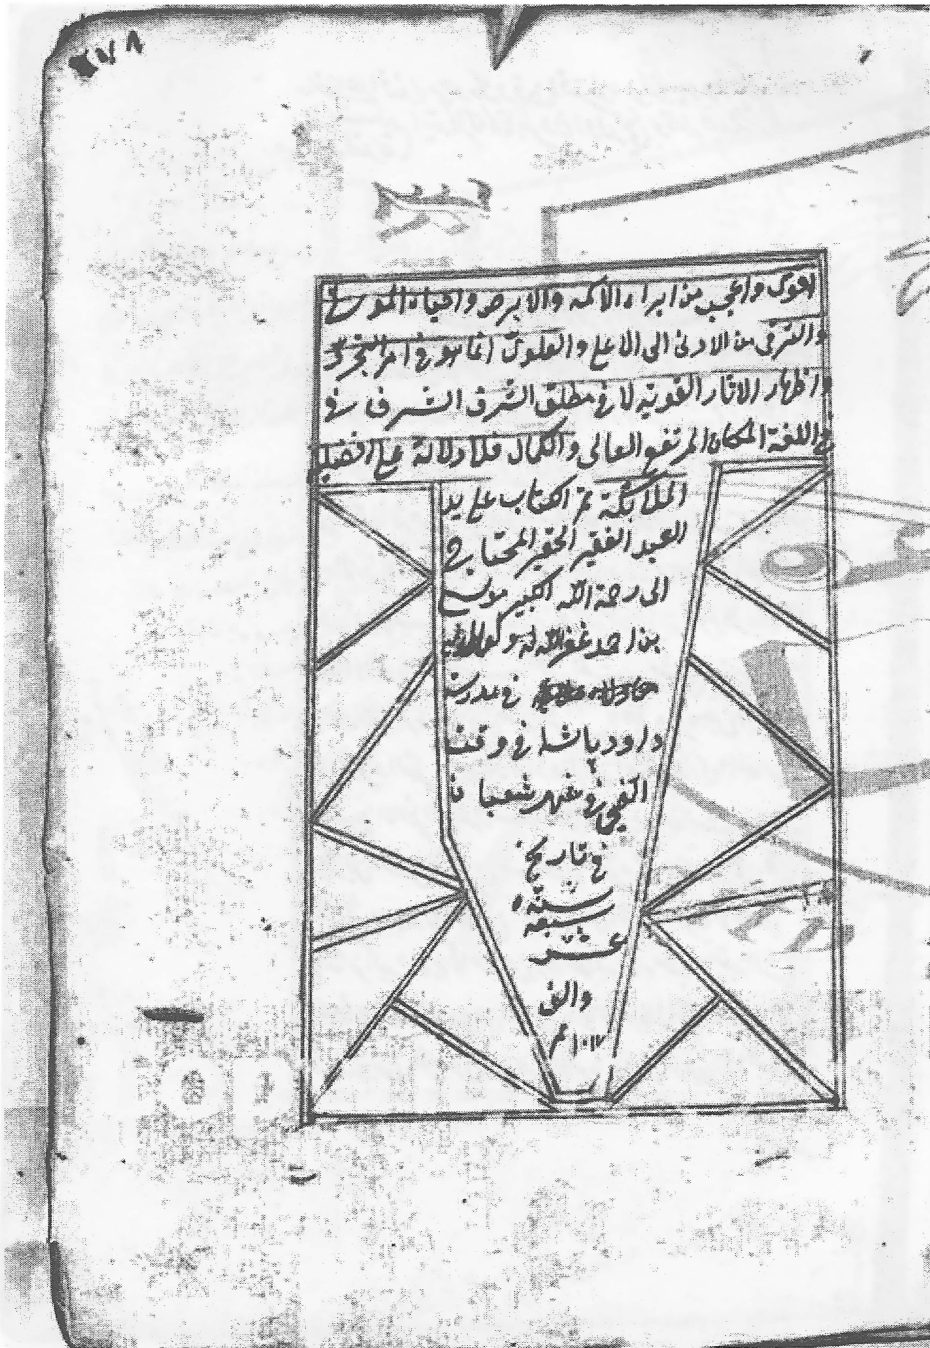 ٢٧٨
اقوى واعجب من ابراء الاكمه والابرص واحياء الموتى
والترقى من الادنى الى الاعلى والعلوق انما هو فى امر التجرد
واظهار الاثار القوية لا فى مطلق الشرف الشرف فى
اللغة المكان المرتفع العالى والكمال فلا دلالة على افضلية
الملائكة تم الكتاب على يد
العبد الفقير الحقير المحتاج
الى رحمة الله الكبير موسى
بن احمد غفر الله له ولوالديه
فى مدرسة
داود پاشا فى وقت
الضحى فى شهر شعبان
فى تاريخ
سنة
سبعة
عشر
والف
١٠١٧ م